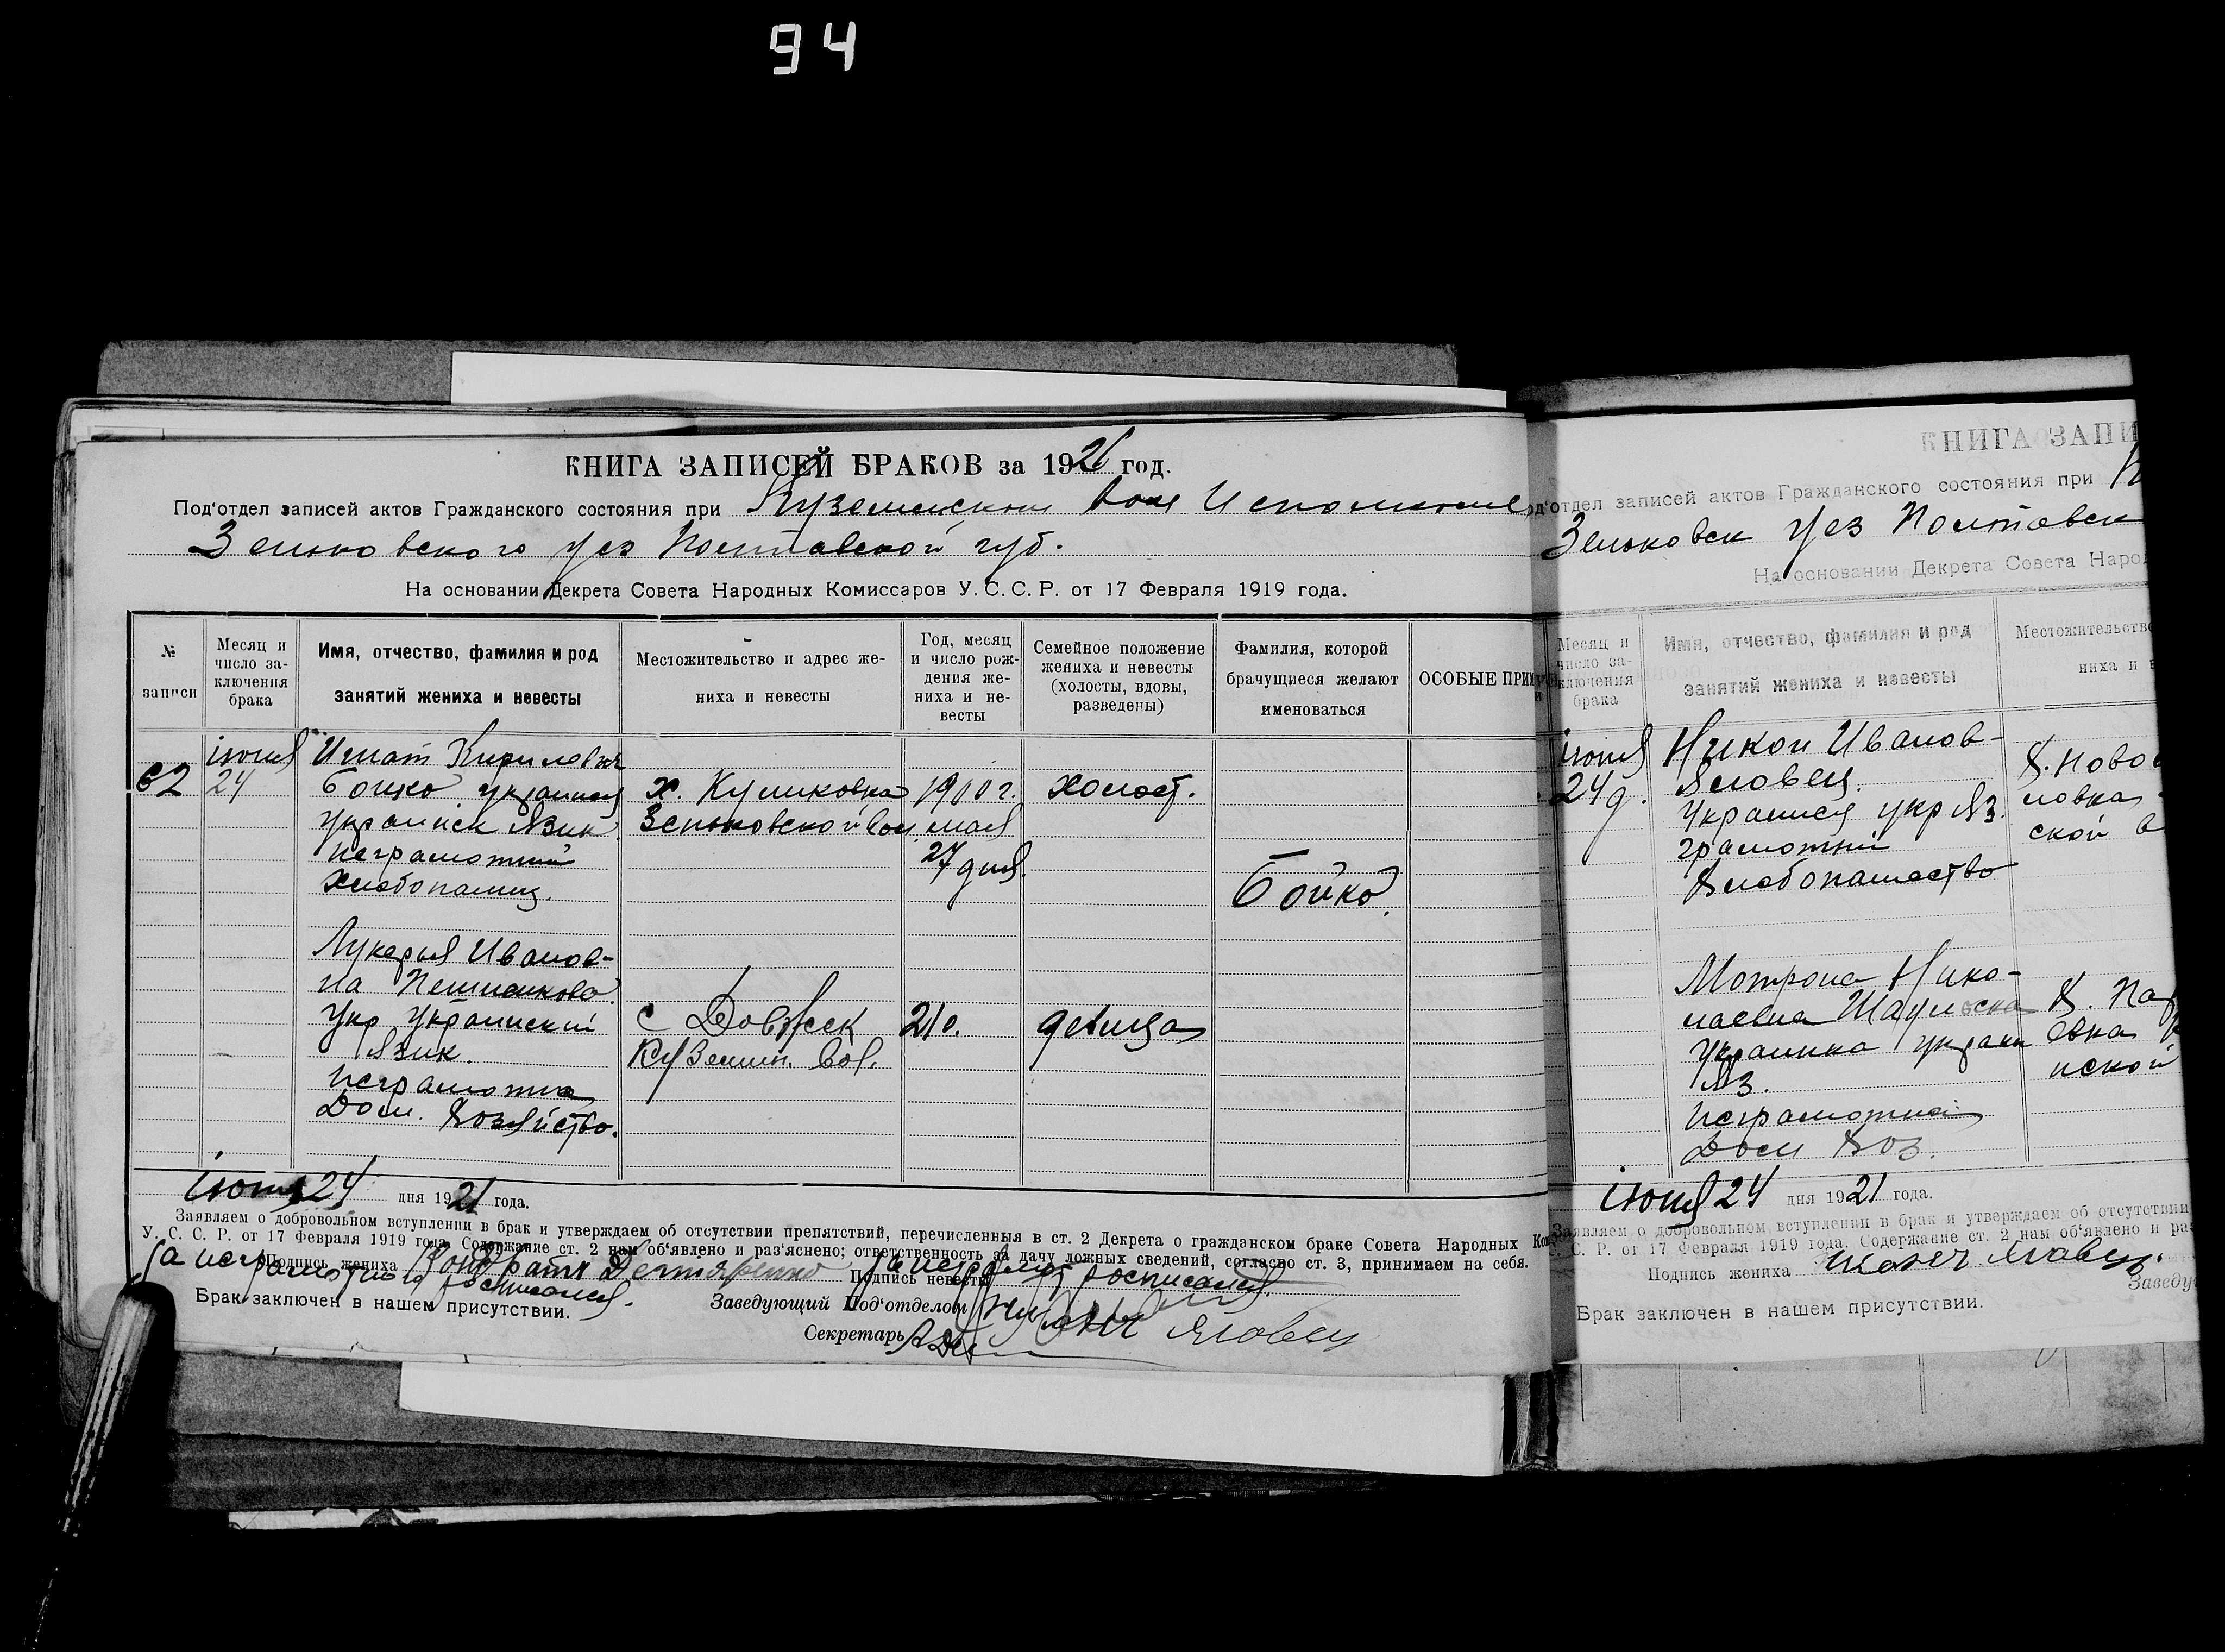 94
КНИГА ЗАПИСЕЙ БРАКОВ за 1921 год.
Под'отдел записей актов Гражданского состояния при Куземенском вол Исполкоме
Зеньковского уез Полтавской губ.
На основании Декрета Совета Народных Комиссаров У.С.С.Р. от 17 Февраля 1919 года.
№ записи
Месяц и число заключения брака
Имя, отчество, фамилия и род занятий жениха и невесты
Местожительство и адрес жениха и невесты
Год, месяц и число рождения жениха и невесты
Семейное положение жениха и невесты (холосты, вдовы, разведены)
Фамилия, которой брачущиеся желают именоваться
ОСОБЫЕ ПРИМ
62
июня
24
Игнат Кирилович
Бойко украинец
украинск язик
неграмотний
хлебопашец.
х. Куликовка
Зеньковской вол
1900 г.
мая
27 дня.
холост.
Бойко.
Лукерья Иванов-
на
Укр Украинский
язик.
неграмотна
Дом. хозяйство.
с Довжек
Куземин. вол.
21 г.
девица
июня 24 дня 1921 года.
Заявляем о добровольном вступлении в брак и утверждаем об отсутствии препятствий, перечисленныя в ст. 2 Декрета о гражданском браке Совета Народных Ко
У. С. С. Р. от 17 Февраля 1919 года. Содержание ст. 2 нам об'явлено и раз'яснено; ответственность за дачу ложных сведений, согласно ст. 3, принимаем на себя.
За неграмотного Подпись жениха Кондрат Дегтяренко За неграмот Подпись невесты росписался.
росписался.
Брак заключен в нашем присутствии.
Заведующий Под'отделом
Секретарь
КНИГА ЗАПИ
од'отдел записей актов Гражданского состояния при К
Зеньковск уез Полтавск
На основании Декрета Совета Народ
Месяц и число заключения брака
Имя, отчество, фамилия и род занятий жениха и невесты
Местожительство
ниха и н
июня
24 д.
Никон Иванов-
Яловец.
Украинец укр яз.
грамотний
хлебопашество
х. Ново
ловка
ской в
Мотрона Нико-
лаевна
Украинка украин
яз.
неграмотная
Дом хоз.
х. Па
евка
нской
июня 24 дня 1921 года.
Заявляем о добровольном вступлении в брак и утверждаем об отсутствии
С. Р. от 17 Февраля 1919 года. Содержание ст. 2 нам об'явлено и ра
Подпись жениха
Заведу
Брак заключен в нашем присутствии.